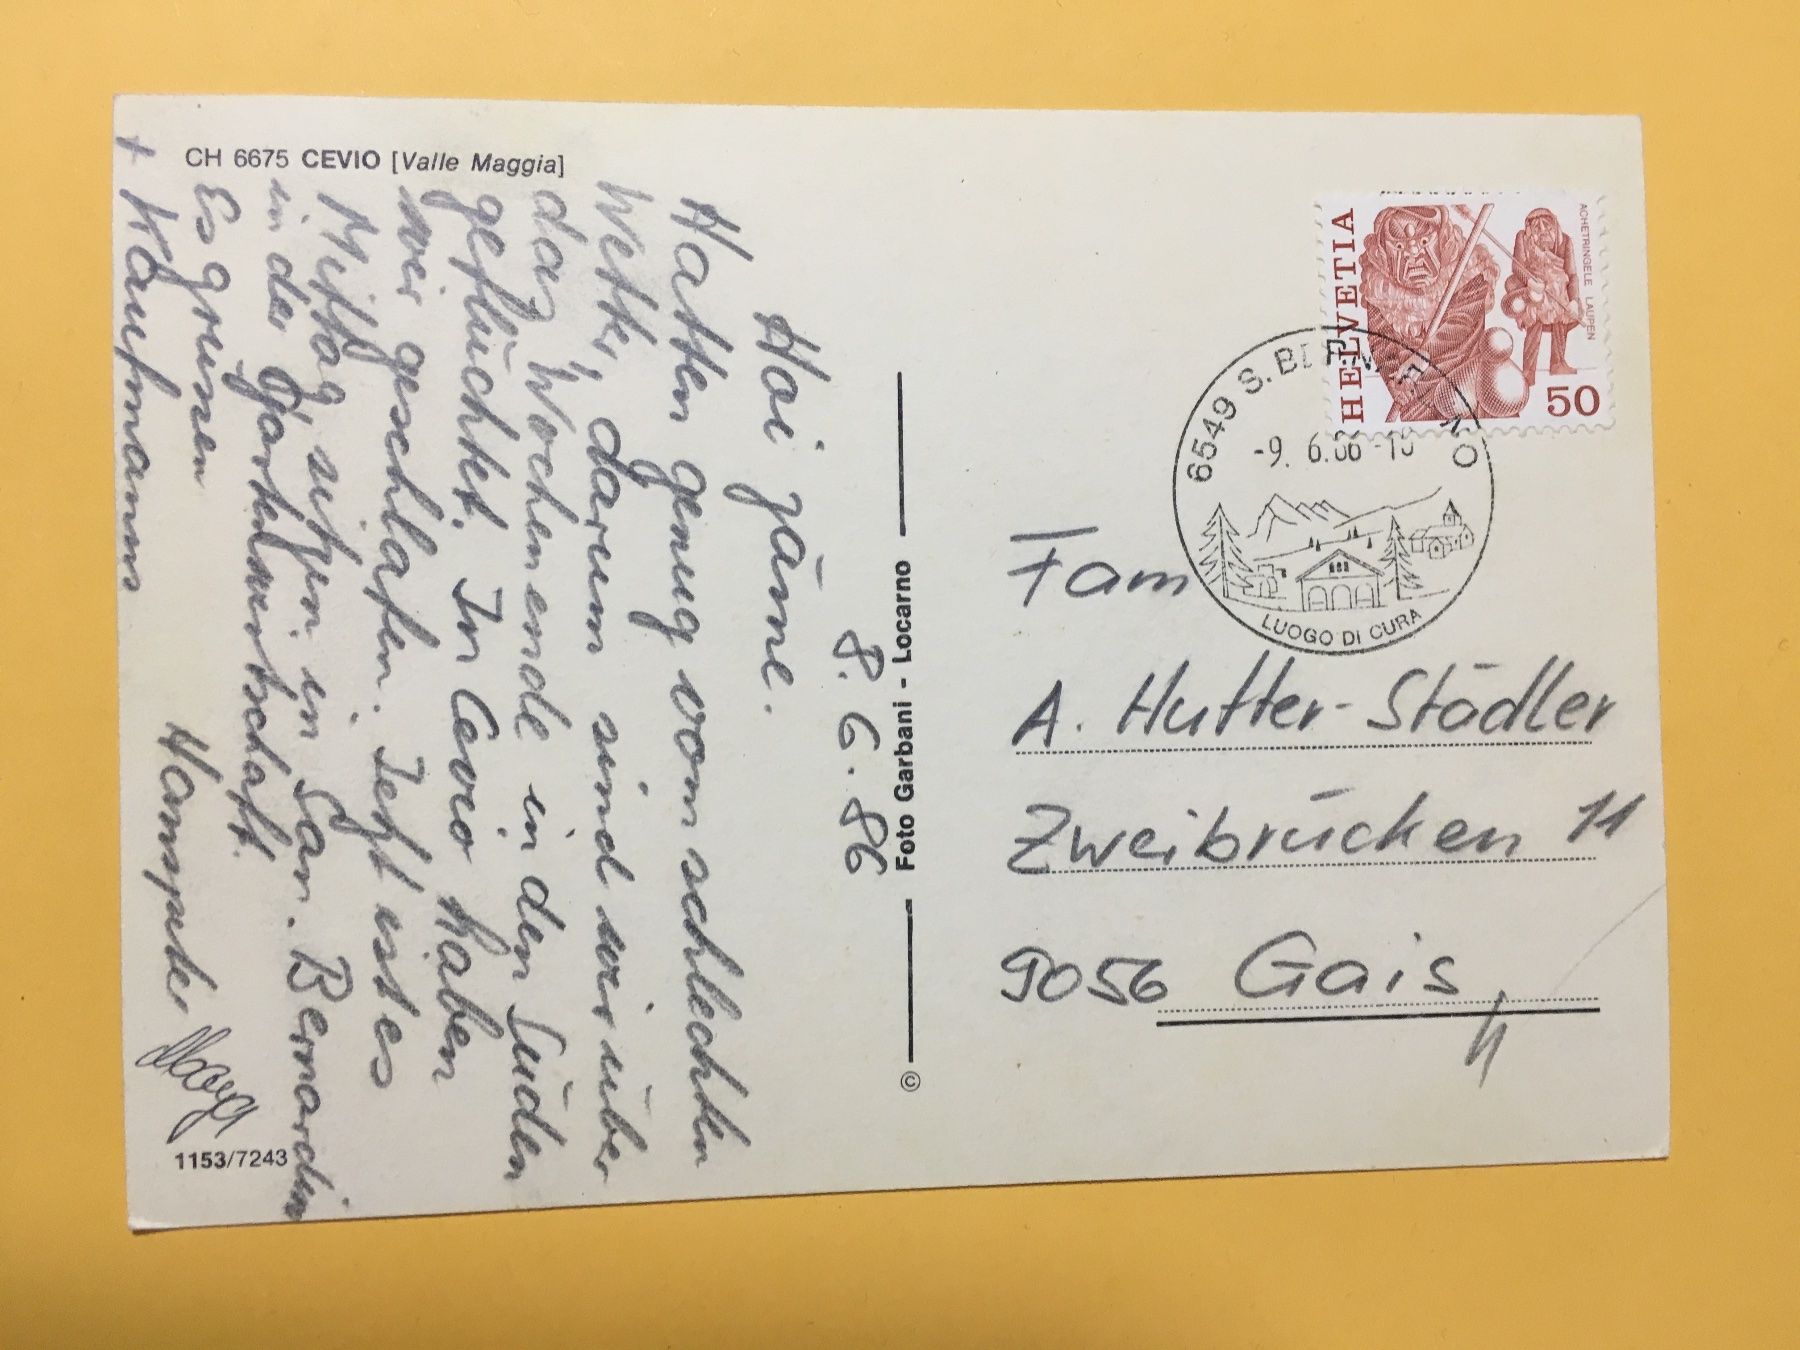 CH 6675 CEVIO [Valle Maggia]
8. 6. 86
Hoi zäme.
Hatten genug vom schlechten
Wetter, darum sind wir über
das Wochenende in den Süden
geflüchtet. In Cevio haben
wir geschlafen. Jetzt ist es
Mittag, sitzen in San. Bernardin
in der Gartenwirtschaft.
Es grüssen
Hanspeter
+ Kaufmanns
1153/7243
© Foto Garbani - Locarno
HELVETIA
ACHETRINGELE LAUPEN
50
6549 S. BERNARDINO
-9. 6.86-10
LUOGO DI CURA
Fam
A. Hutter-Städler
Zweibrücken 11
9056 Gais